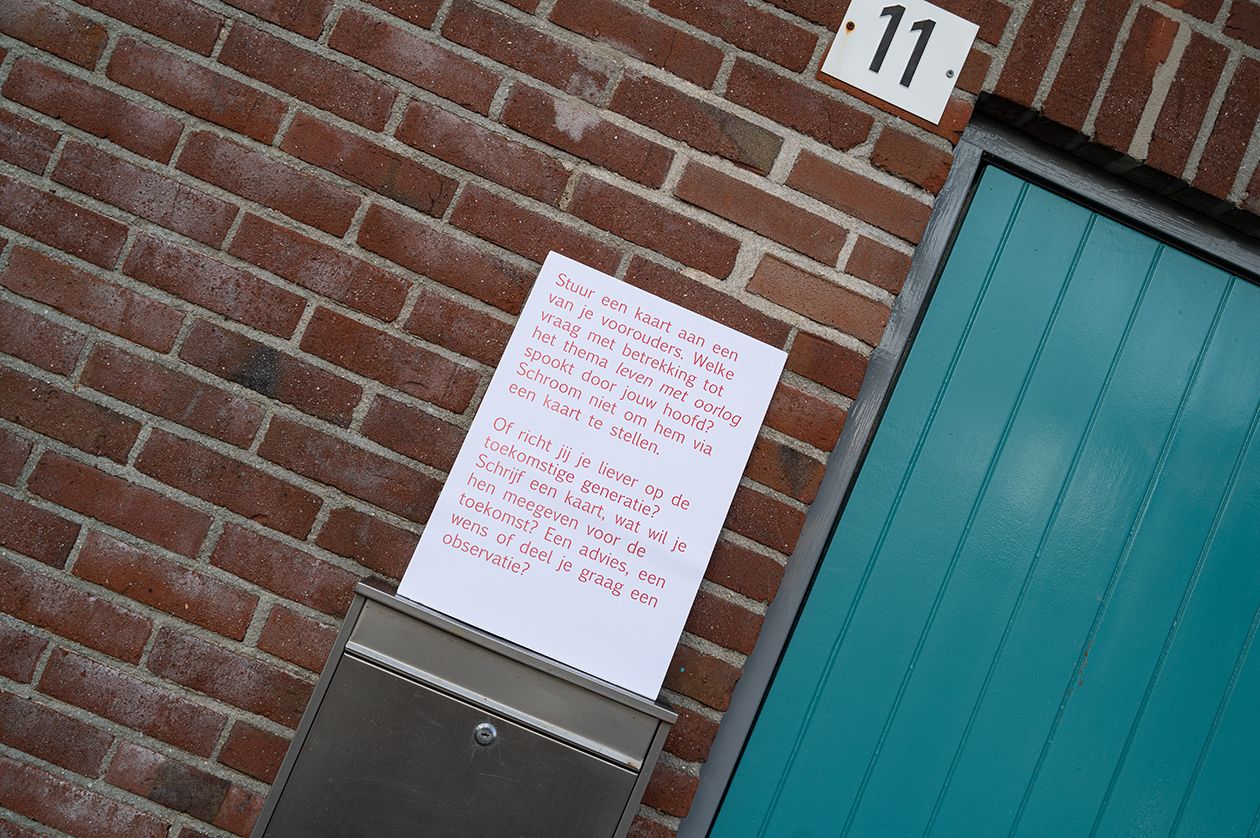 11
Stuur een kaart aan een
van je voorouders. Welke
vraag met betrekking tot
het thema leven met oorlog
spookt door jouw hoofd?
Schroom niet om hem via
een kaart te stellen.
Of richt jij je liever op de
toekomstige generatie?
Schrijf een kaart, wat wil je
hen meegeven voor de
toekomst? Een advies, een
wens of deel je graag een
observatie?